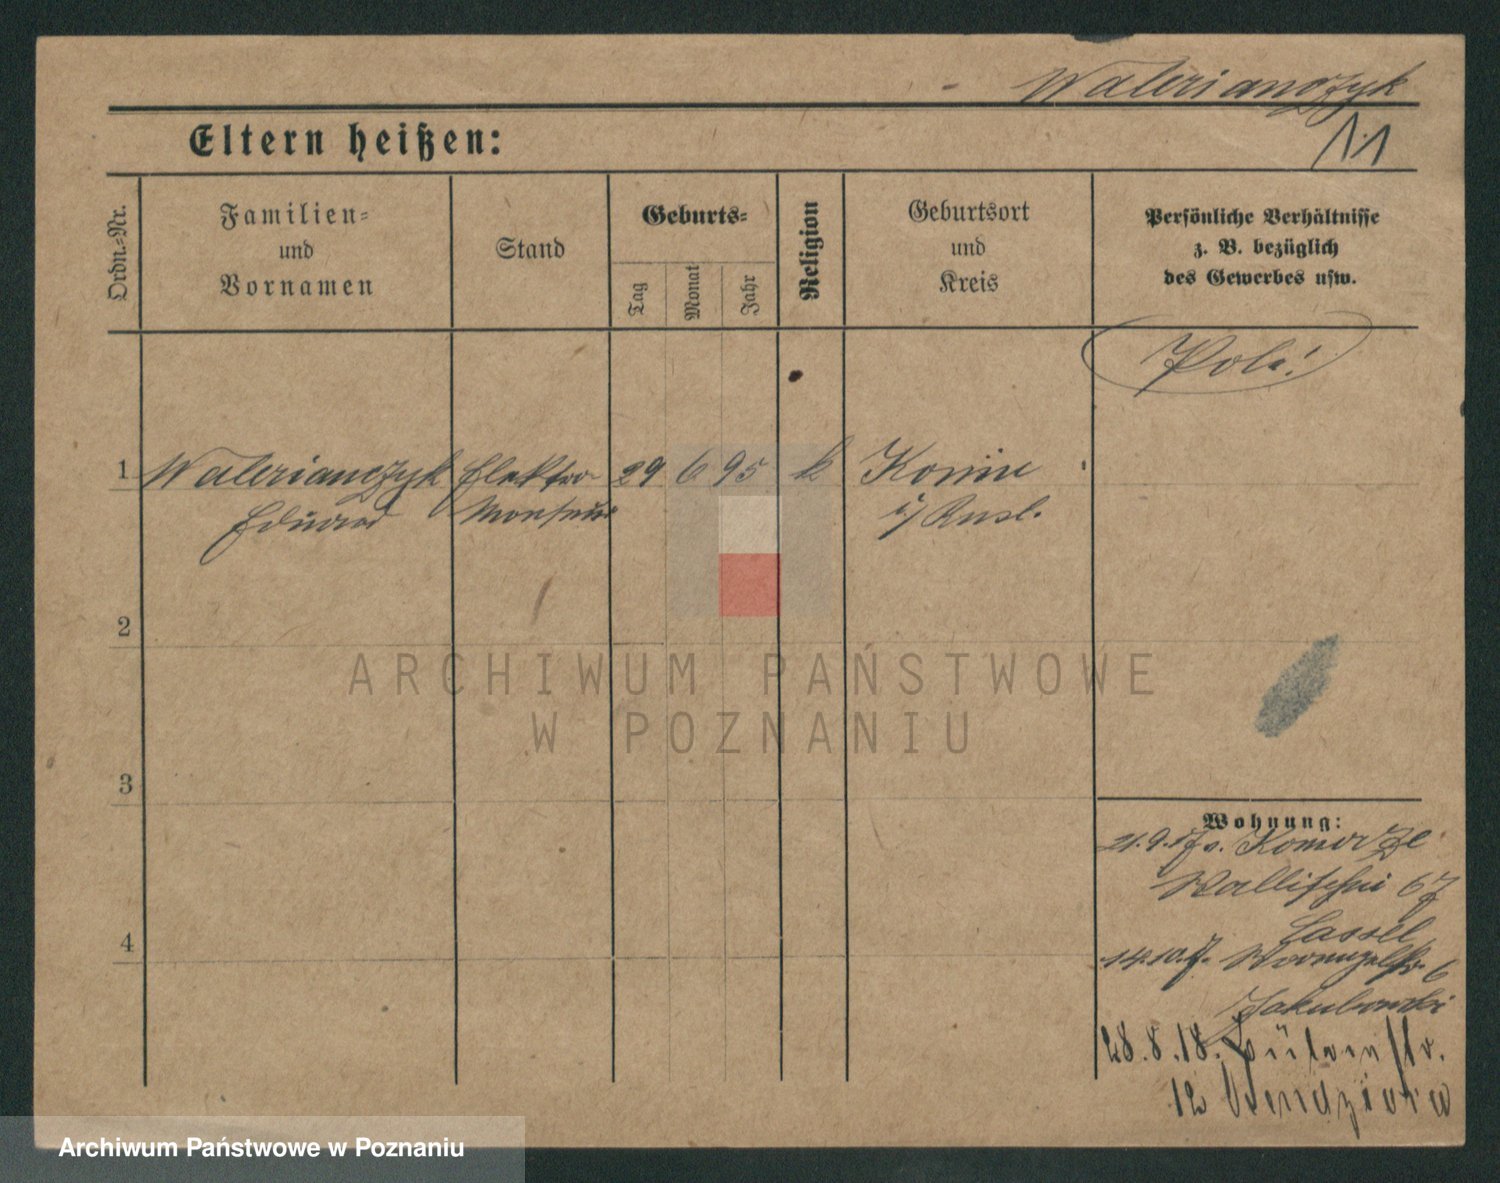 Walerianczyk
11
Eltern heißen:
Ordn.=Nr.
Familien=
und
Vornamen
Stand
Geburts=
Tag
Monat
Jahr
Religion
Geburtsort
und
Kreis
Persönliche Verhältnisse
z. B. bezüglich
des Gewerbes usw.
Pole!
1
Walerianczyk
Eduard
Elektro-
Monteur
29
6
95
k
Konin
i/ Rusl.
2
ARCHIWUM PAŃSTWOWE
W POZNANIU
3
Wohnung:
21.9.17 v.
Wallischei 67
Cassel
4
14.10.17. 6
Jakubowski
28.8.18. Bülowstr.
12
Archiwum Państwowe w Poznaniu